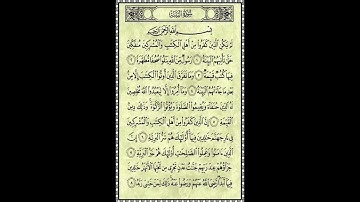 سُورَةُ البَيِّنَةِ
بِسْمِ اللَّهِ الرَّحْمَٰنِ الرَّحِيمِ
لَمْ يَكُنِ الَّذِينَ كَفَرُوا مِنْ أَهْلِ الْكِتَٰبِ وَالْمُشْرِكِينَ مُنفَكِّينَ
حَتَّىٰ تَأْتِيَهُمُ الْبَيِّنَةُ ١ رَسُولٌ مِّنَ اللَّهِ يَتْلُوا صُحُفًا مُّطَهَّرَةً ٢
فِيهَا كُتُبٌ قَيِّمَةٌ ٣ وَمَا تَفَرَّقَ الَّذِينَ أُوتُوا الْكِتَٰبَ إِلَّا مِن
بَعْدِ مَا جَآءَتْهُمُ الْبَيِّنَةُ ٤ وَمَآ أُمِرُوٓا إِلَّا لِيَعْبُدُوا اللَّهَ مُخْلِصِينَ
لَهُ الدِّينَ حُنَفَآءَ وَيُقِيمُوا الصَّلَوٰةَ وَيُؤْتُوا الزَّكَوٰةَ وَذَٰلِكَ دِينُ
الْقَيِّمَةِ ٥ إِنَّ الَّذِينَ كَفَرُوا مِنْ أَهْلِ الْكِتَٰبِ وَالْمُشْرِكِينَ
فِي نَارِ جَهَنَّمَ خَٰلِدِينَ فِيهَآ أُولَٰٓئِكَ هُمْ شَرُّ الْبَرِيَّةِ ٦ إِنَّ
الَّذِينَ ءَامَنُوا وَعَمِلُوا الصَّٰلِحَٰتِ أُولَٰٓئِكَ هُمْ خَيْرُ الْبَرِيَّةِ ٧
جَزَآؤُهُمْ عِندَ رَبِّهِمْ جَنَّٰتُ عَدْنٍ تَجْرِي مِن تَحْتِهَا الْأَنْهَٰرُ خَٰلِدِينَ
فِيهَآ أَبَدًا رَّضِيَ اللَّهُ عَنْهُمْ وَرَضُوا عَنْهُ ذَٰلِكَ لِمَنْ خَشِيَ رَبَّهُ ٨